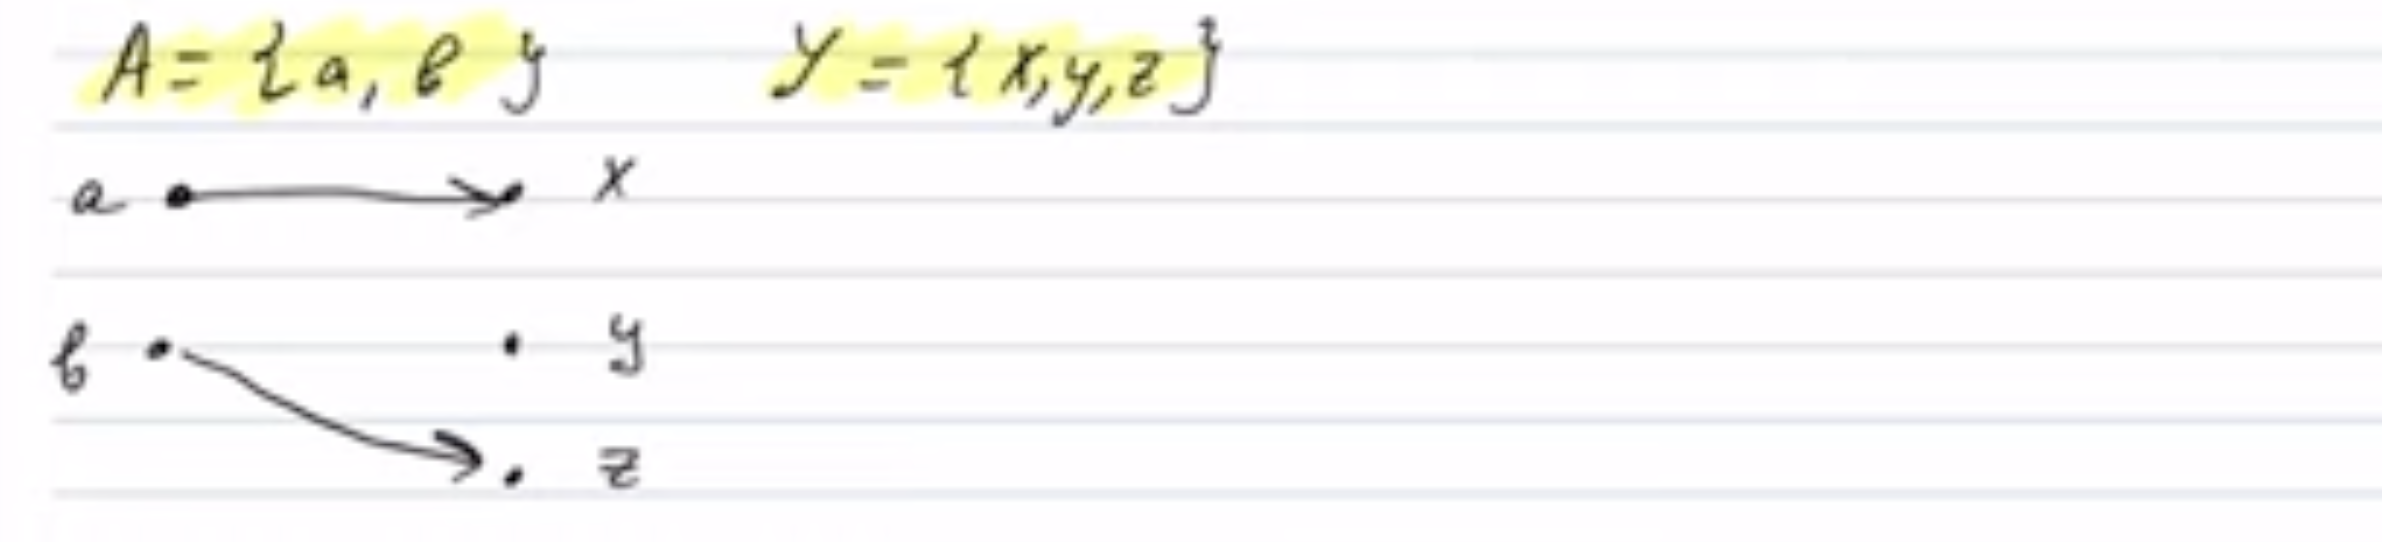 A = {a, b}  Y = {x, y, z}
a  x
b  y
z